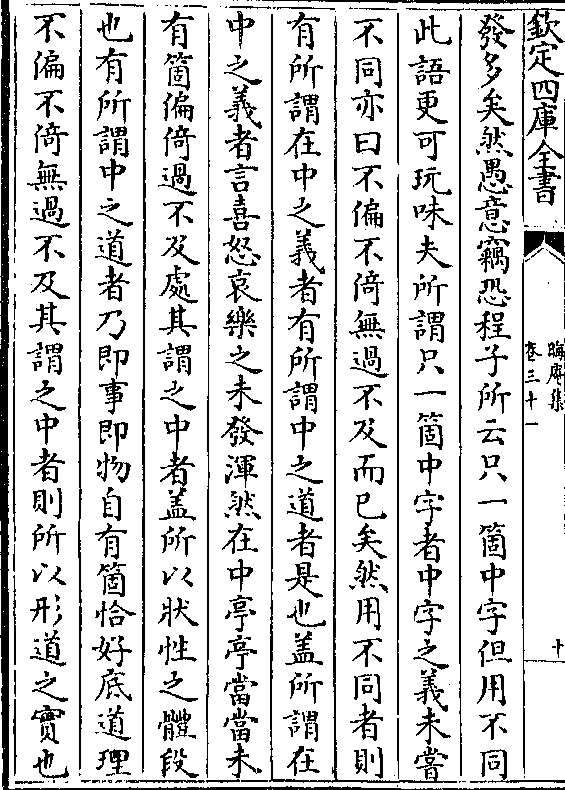 欽定四庫全書
晦庵集
卷三十一
十
發多矣然愚意竊恐程子所云只一箇中字但用不同
此語更可玩味夫所謂只一箇中字者中字之義未嘗
不同亦曰不偏不倚無過不及而已矣然用不同者則
有所謂在中之義者有所謂中之道者是也盖所謂在
中之義者言喜怒哀樂之未發渾然在中亭亭當當未
有箇偏倚過不及處其謂之中者盖所以狀性之體段
也有所謂中之道者乃即事即物自有箇恰好底道理
不偏不倚無過不及其謂之中者則所以形道之實也